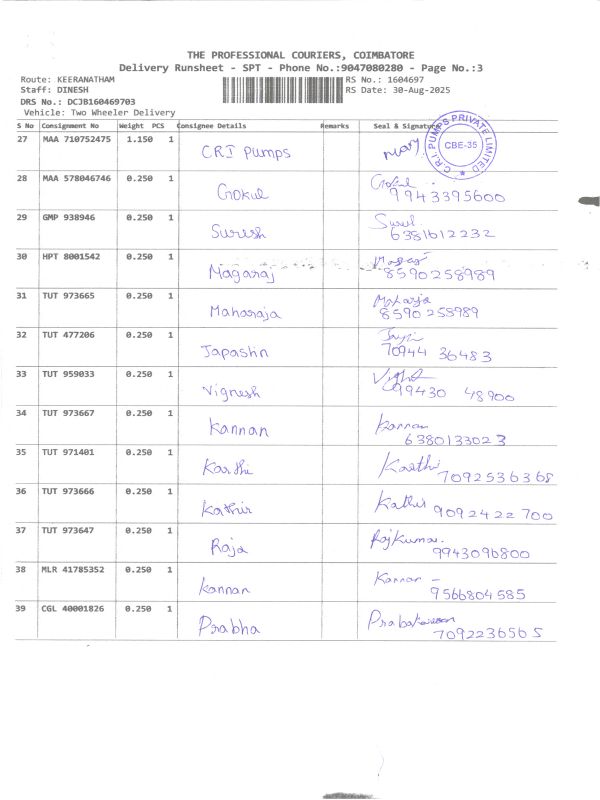 THE PROFESSIONAL COURIERS, COIMBATORE
Delivery Runsheet - SPT - Phone No.:9047080280 - Page No.:3
Route: KEERANATHAM RS No.: 1604697
Staff: DINESH RS Date: 30-Aug-2025
DRS No.: DCJB160469703
Vehicle: Two Wheeler Delivery
S No Consignment No Weight PCS Consignee Details Remarks Seal & Signature
27 MAA 710752475 1.150 1 CRI Pumps Mary C.R.I PUMPS PRIVATE LIMITED CBE-35
28 MAA 578046746 0.250 1 Gokul Gokul
9943395600
29 GMP 938946 0.250 1 Suresh
6381612232
30 HPT 8001542 0.250 1 Magaraj
8590258989
31 TUT 973665 0.250 1 Maharaja Maharja
8590258989
32 TUT 477206 0.250 1 Japashn
70944 36483
33 TUT 959033 0.250 1 Vignesh
99430 48900
34 TUT 973667 0.250 1 Kannan Kannan
6380133023
35 TUT 971401 0.250 1 Karthi Karthi
7092536368
36 TUT 973666 0.250 1 Kathir Kathir
9092422700
37 TUT 973647 0.250 1 Raja Rajkumar.
9943096800
38 MLR 41785352 0.250 1 Kannan Kannan -
9566804585
39 CGL 40001826 0.250 1 Prabha Prabakaran
7092236565